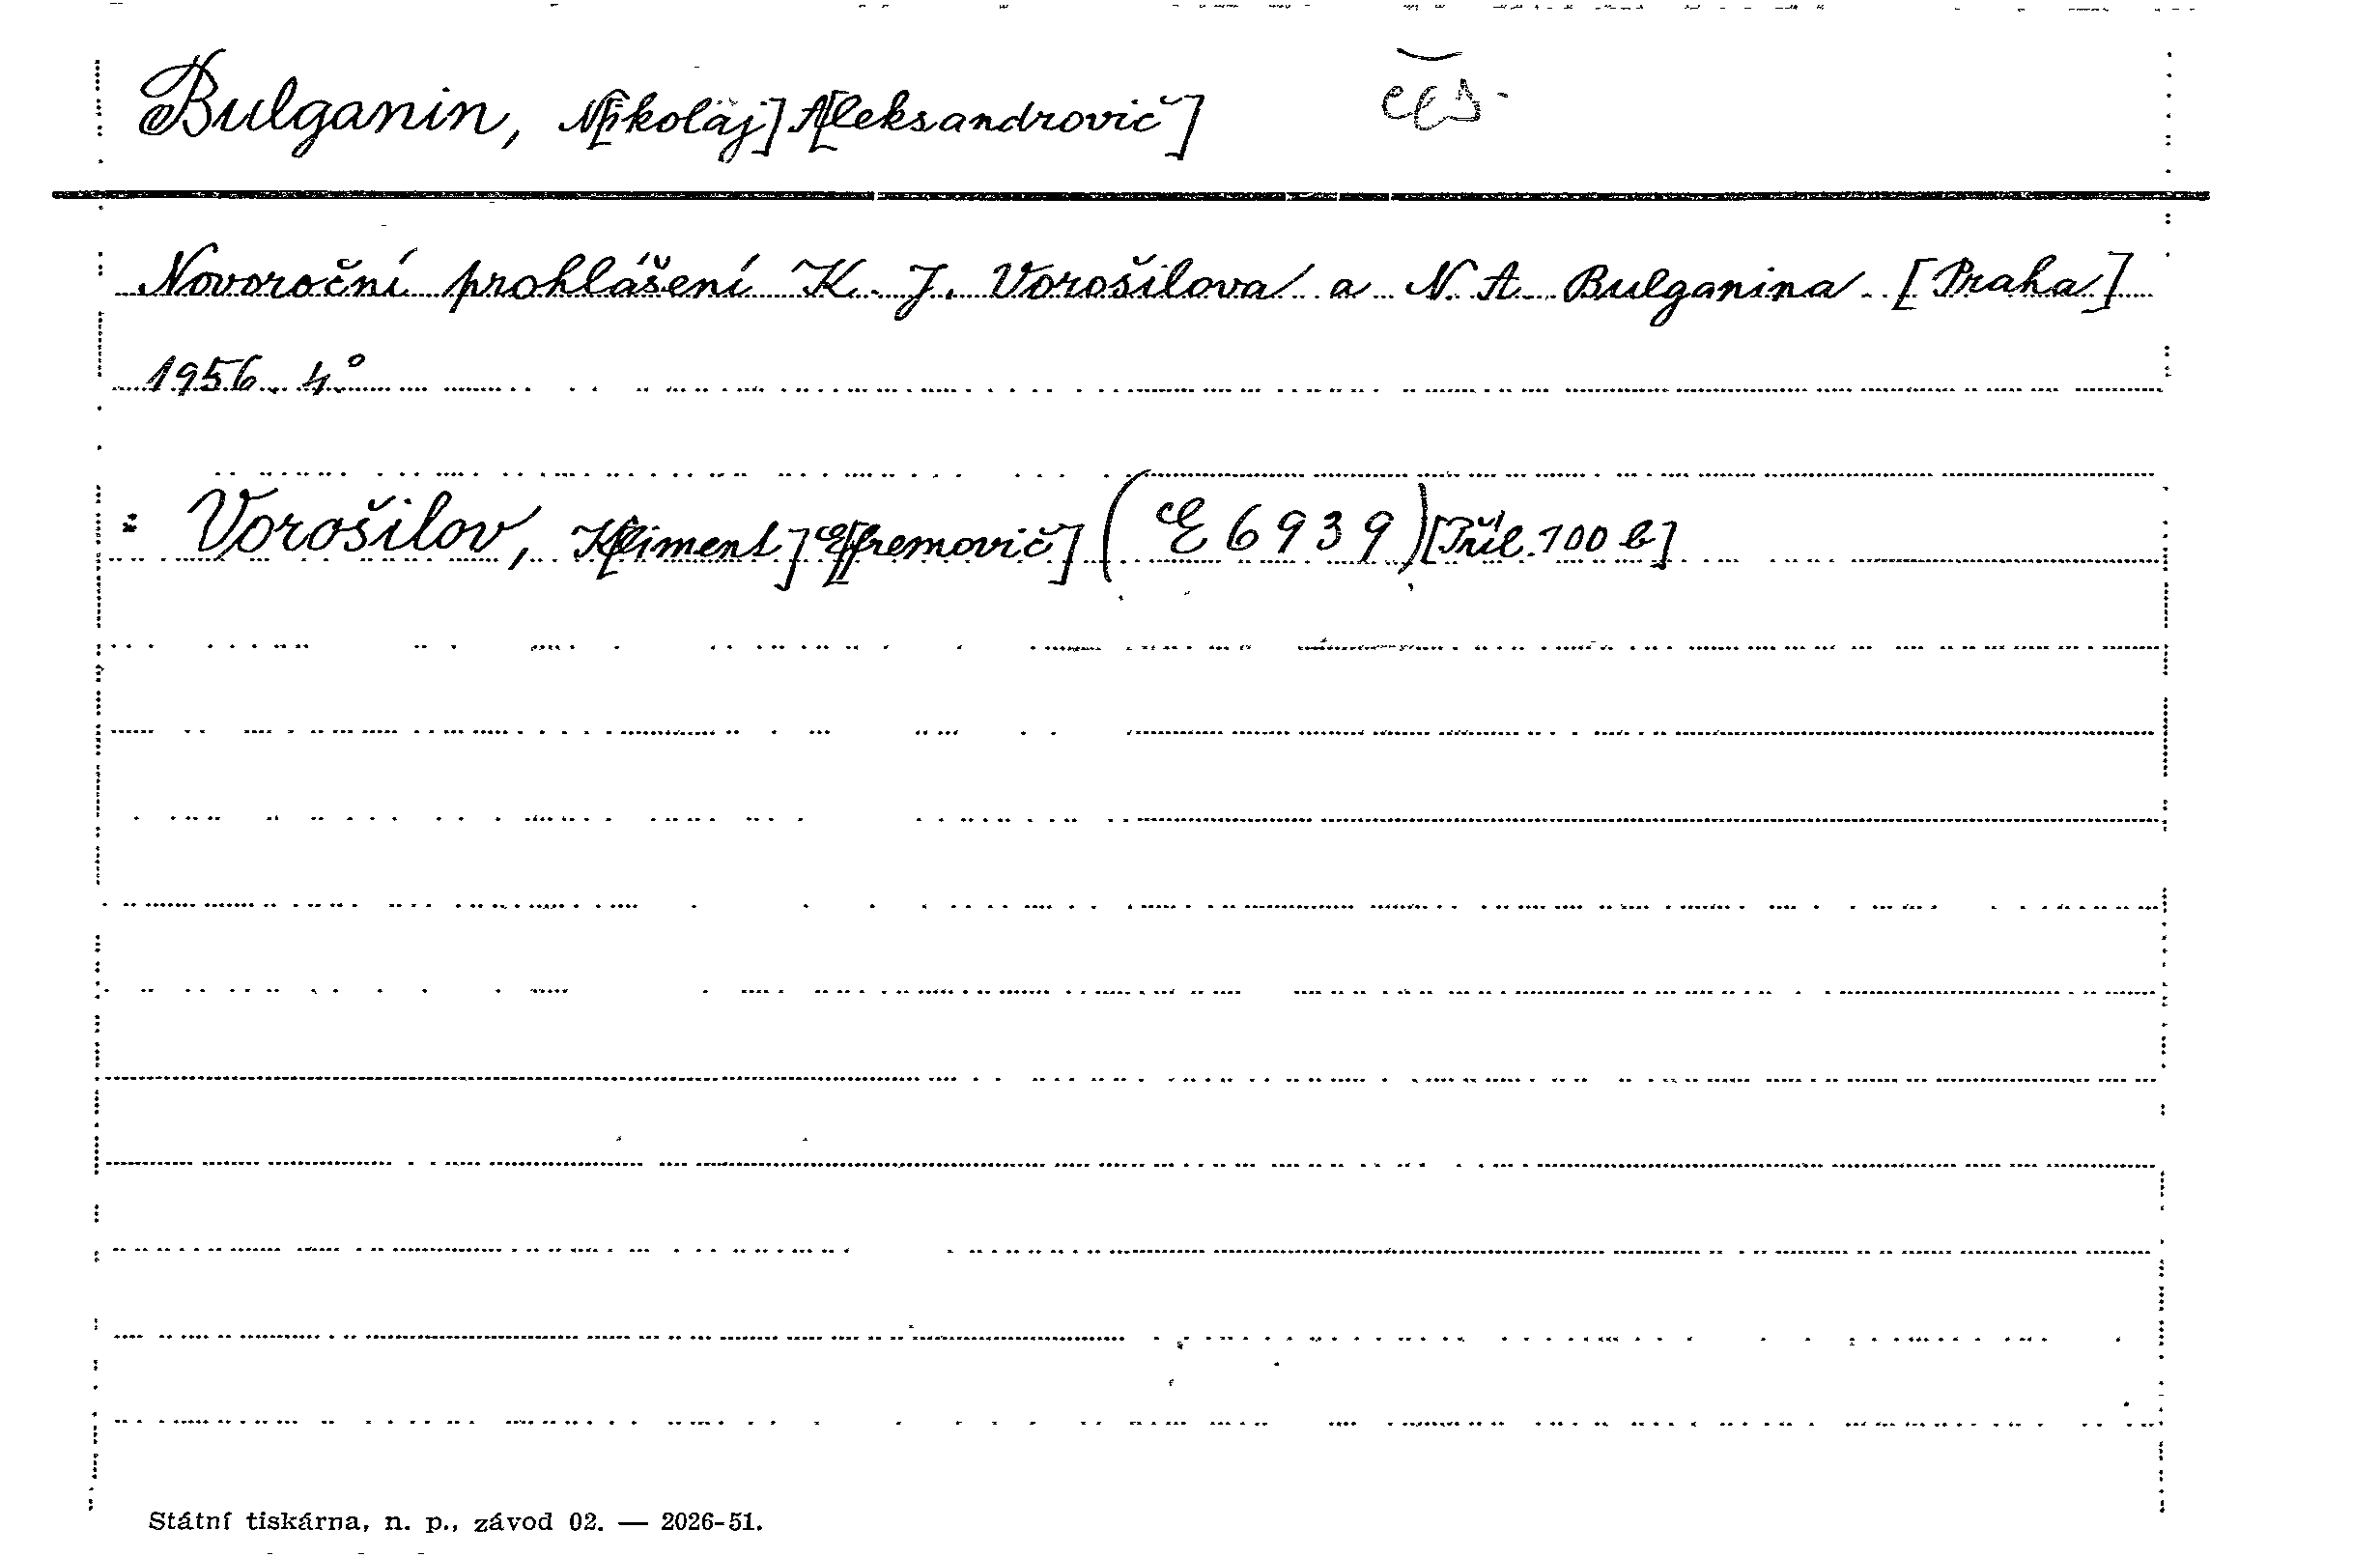 Bulganin, N[ikolaj] A[leksandrovič] čes.
Novoroční prohlášení K. J. Vorošilova a N. A. Bulganina. [Praha]
1956. 4°
: Vorošilov, K[liment] E[fremovič] (E 6939) [Příl. 100 b]
Státní tiskárna, n. p., závod 02. — 2026-51.